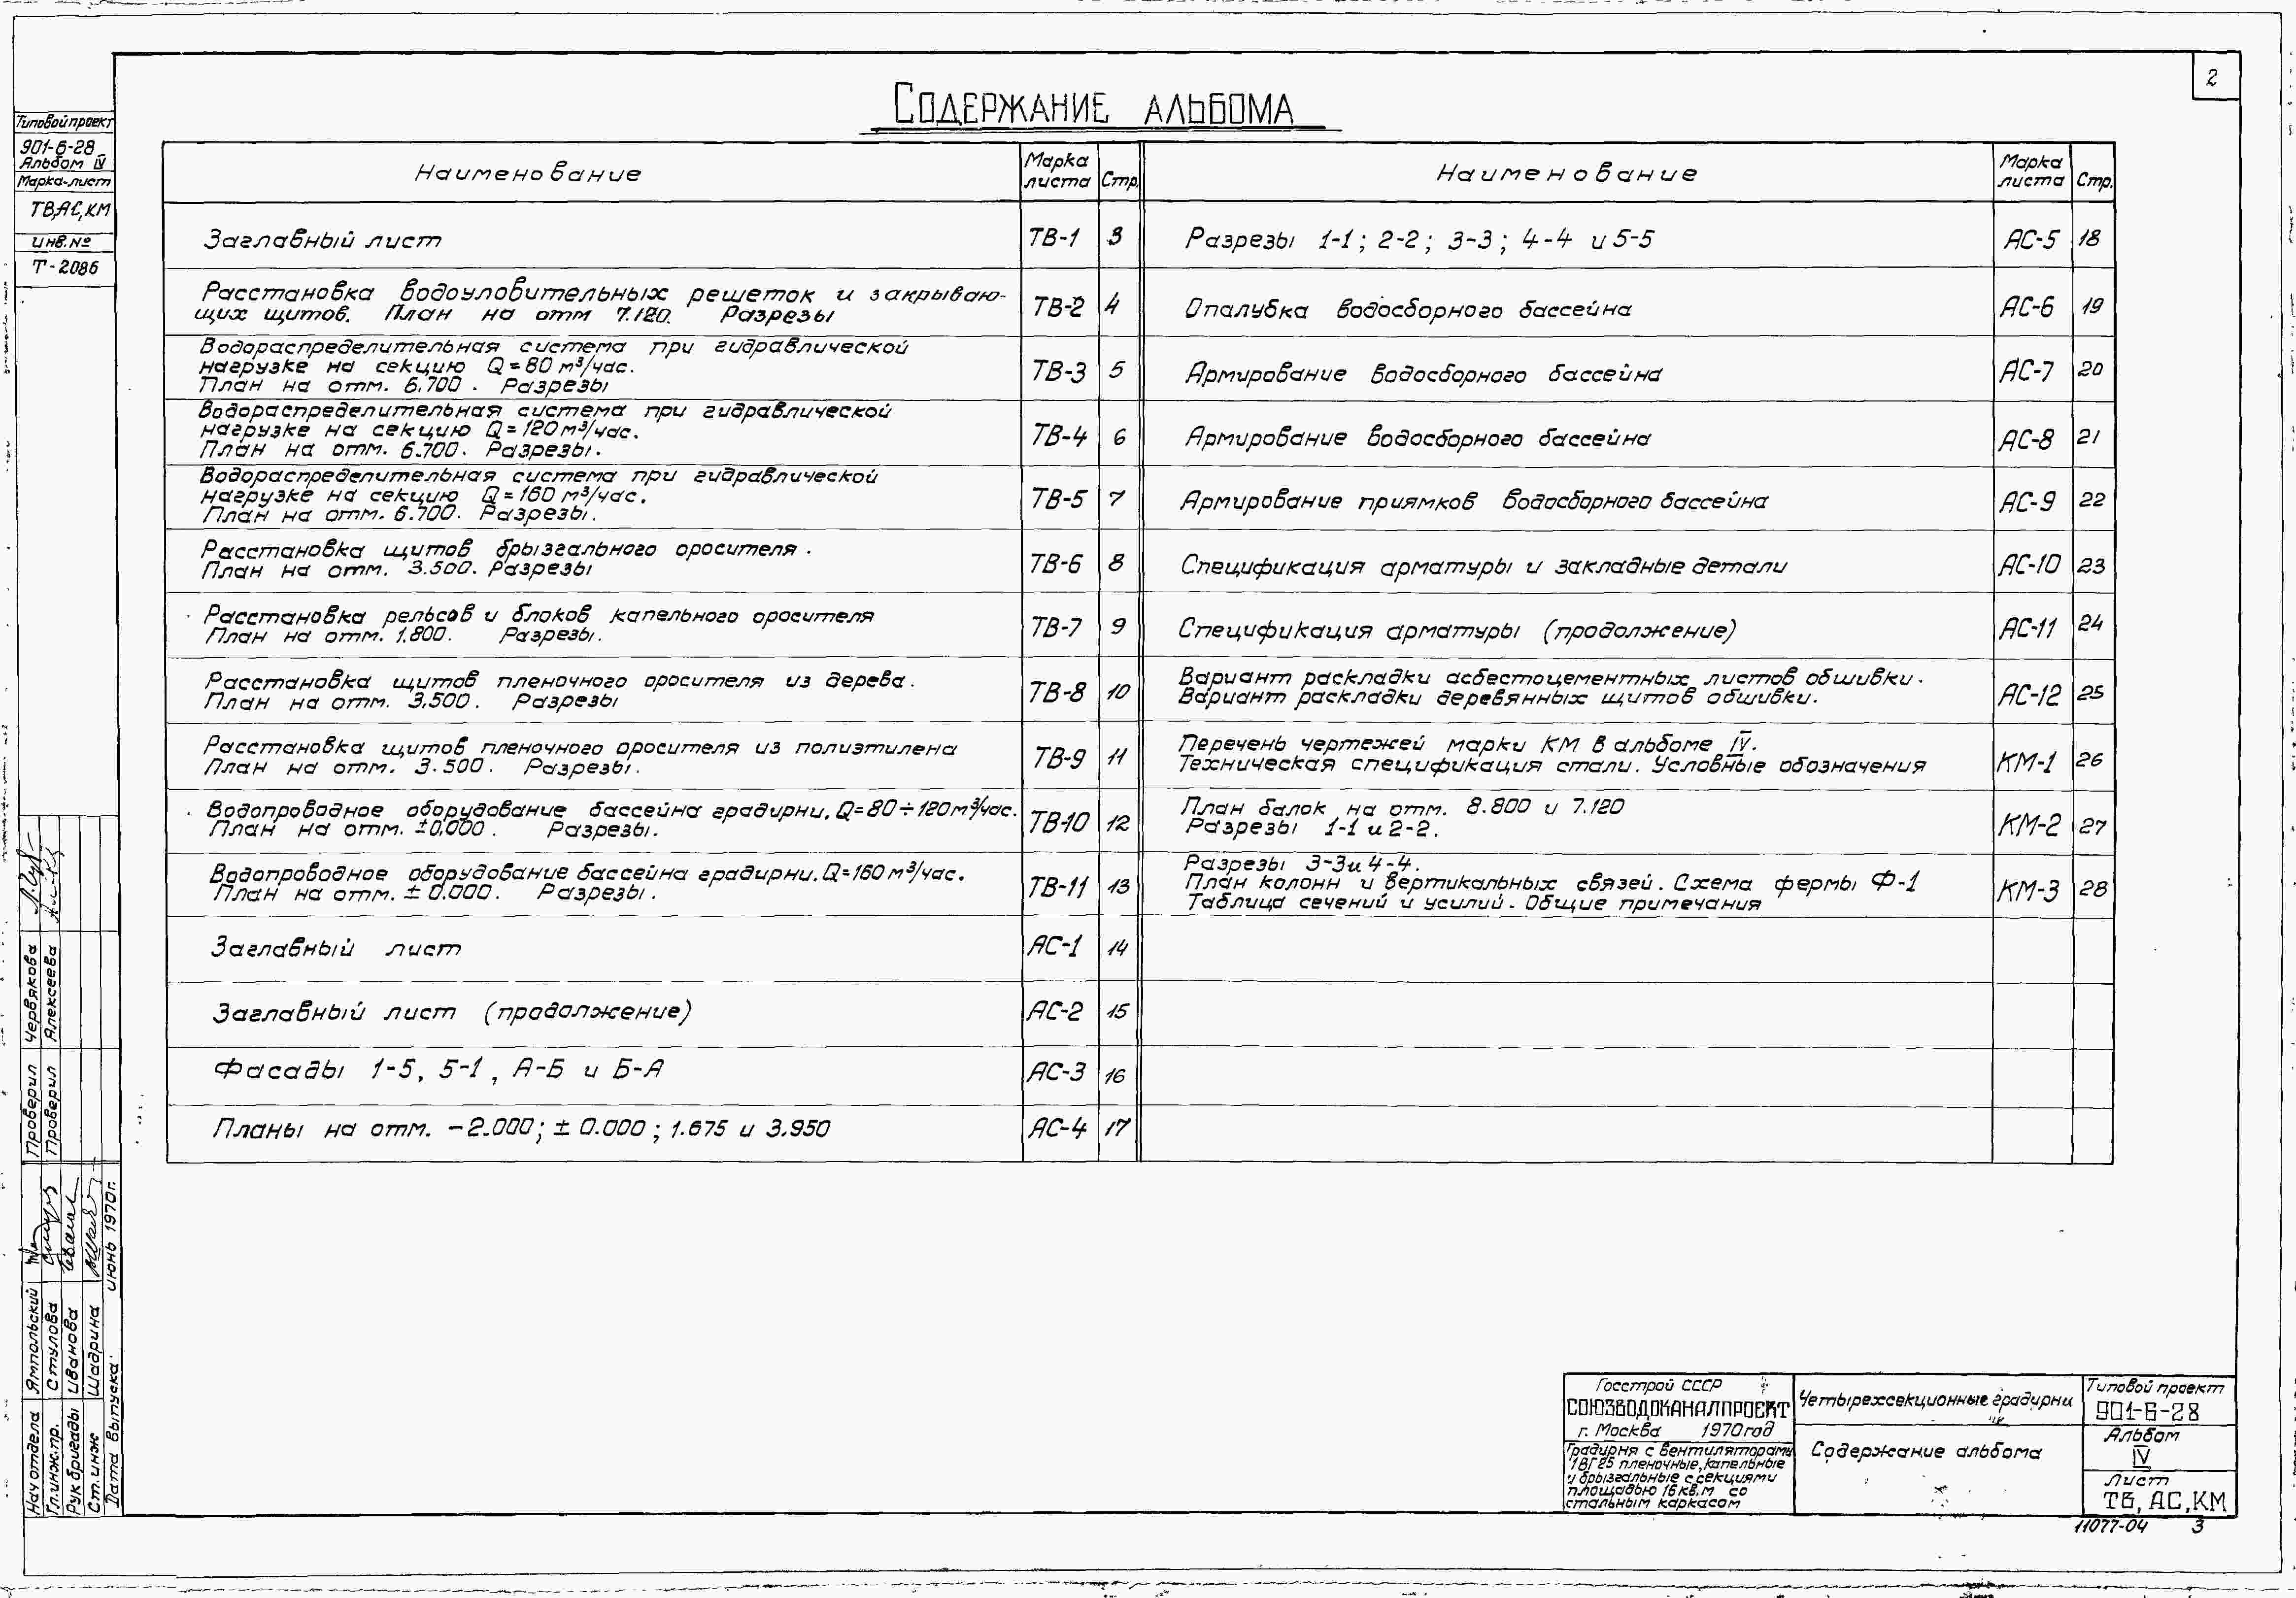 2
Содержание альбома
Типовой проект
901-6-28
Альбом IV
Марка-лист
ТВ, АС, КМ
Инв.№
Т-2086
Наименование
Марка листа
Стр.
Заглавный лист
ТВ-1
3
Расстановка водоуловительных решеток и закрываю-
щих щитов. План на отм 7.120. Разрезы
ТВ-2
4
Водораспределительная система при гидравлической
нагрузке на секцию Q=80 м³/час.
План на отм. 6.700. Разрезы
ТВ-3
5
Водораспределительная система при гидравлической
нагрузке на секцию Q=120м³/час.
План на отм. 6.700. Разрезы.
ТВ-4
6
Водораспределительная система при гидравлической
нагрузке на секцию Q=160 м³/час.
План на отм. 6.700. Разрезы.
ТВ-5
7
Расстановка щитов брызгального оросителя.
План на отм. 3.500. Разрезы
ТВ-6
8
Расстановка рельсов и блоков капельного оросителя
План на отм. 1.800. Разрезы.
ТВ-7
9
Расстановка щитов пленочного оросителя из дерева.
План на отм. 3.500. Разрезы
ТВ-8
10
Расстановка щитов пленочного оросителя из полиэтилена
План на отм. 3.500. Разрезы.
ТВ-9
11
Водопроводное оборудование бассейна градирни. Q=80÷120м³/час.
План на отм. ±0.000. Разрезы.
ТВ-10
12
Водопроводное оборудование бассейна градирни. Q=160 м³/час.
План на отм. ± 0.000. Разрезы.
ТВ-11
13
Заглавный лист
АС-1
14
Заглавный лист (продолжение)
АС-2
15
Фасады 1-5, 5-1, А-Б и Б-А
АС-3
16
Планы на отм. -2.000; ± 0.000; 1.675 и 3.950
АС-4
17
Наименование
Марка листа
Стр.
Разрезы 1-1; 2-2; 3-3; 4-4 и 5-5
АС-5
18
Опалубка водосборного бассейна
АС-6
19
Армирование водосборного бассейна
АС-7
20
Армирование водосборного бассейна
АС-8
21
Армирование приямков водосборного бассейна
АС-9
22
Спецификация арматуры и закладные детали
АС-10
23
Спецификация арматуры (продолжение)
АС-11
24
Вариант раскладки асбестоцементных листов обшивки.
Вариант раскладки деревянных щитов обшивки.
АС-12
25
Перечень чертежей марки КМ в альбоме IV.
Техническая спецификация стали. Условные обозначения
КМ-1
26
План балок на отм. 8.800 и 7.120
Разрезы 1-1 и 2-2.
КМ-2
27
Разрезы 3-3 и 4-4.
План колонн и вертикальных связей. Схема фермы Ф-1
Таблица сечений и усилий. Общие примечания
КМ-3
28
Проверил Червякова
Проверил Алексеева
Нач отдела Ямпольский
Гл.инж.пр. Стулова
Рук бригады Иванова
Ст. инж Шадрина
Дата выпуска июнь 1970г.
Госстрой СССР
СОЮЗВОДОКАНАЛПРОЕКТ
г. Москва 1970год
Градирня с вентиляторами
1ВГ25 пленочные, капельные
и брызгальные с секциями
площадью 16 кв.м со
стальным каркасом
Четырехсекционные градирни
Содержание альбома
Типовой проект
901-6-28
Альбом
IV
Лист
ТВ, АС, КМ
11077-04 3